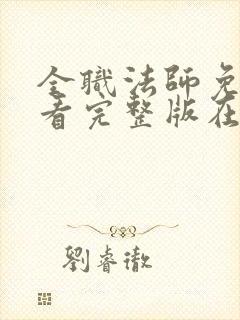 全職法師免
看完整版在
劉睿徹